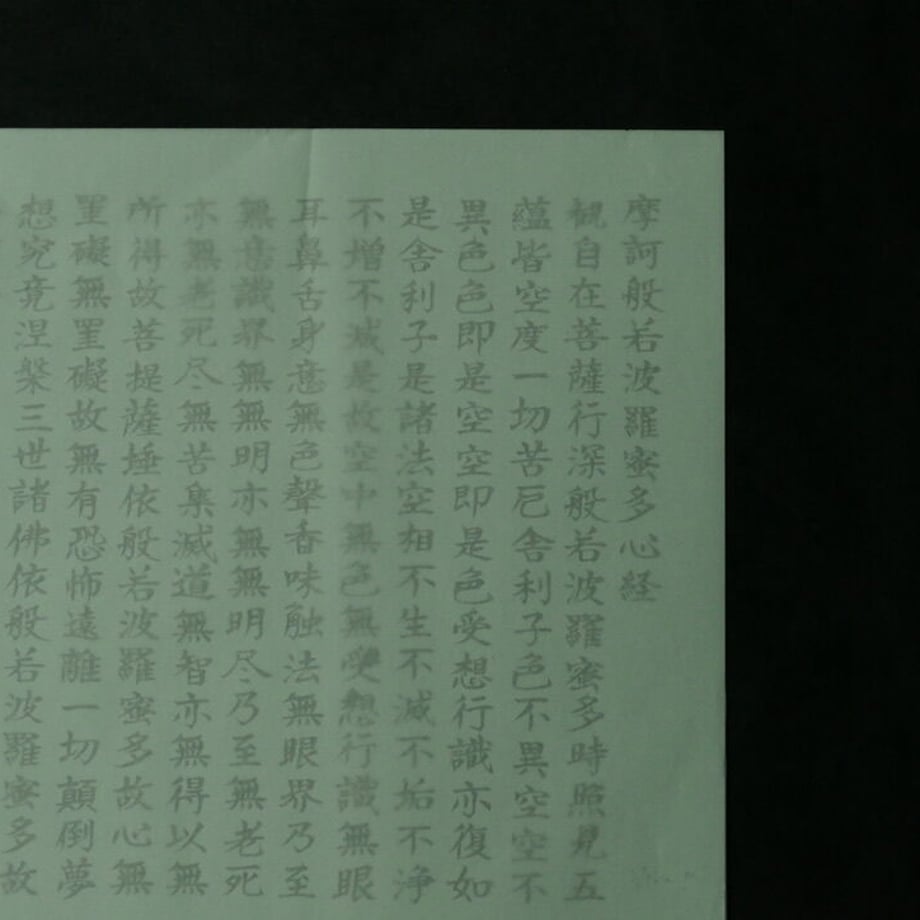 摩訶般若波羅蜜多心経
観自在菩薩行深般若波羅蜜多時照見五
蘊皆空度一切苦厄舎利子色不異空空不
異色色即是空空即是色受想行識亦復如
是舎利子是諸法空相不生不滅不垢不浄
不増不減是故空中無色無受想行識無眼
耳鼻舌身意無色聲香味触法無眼界乃至
無意識界無無明亦無無明尽乃至無老死
亦無老死尽無苦集滅道無智亦無得以無
所得故菩提薩埵依般若波羅蜜多故心無
罣礙無罣礙故無有恐怖遠離一切顛倒夢
想究竟涅槃三世諸佛依般若波羅蜜多故